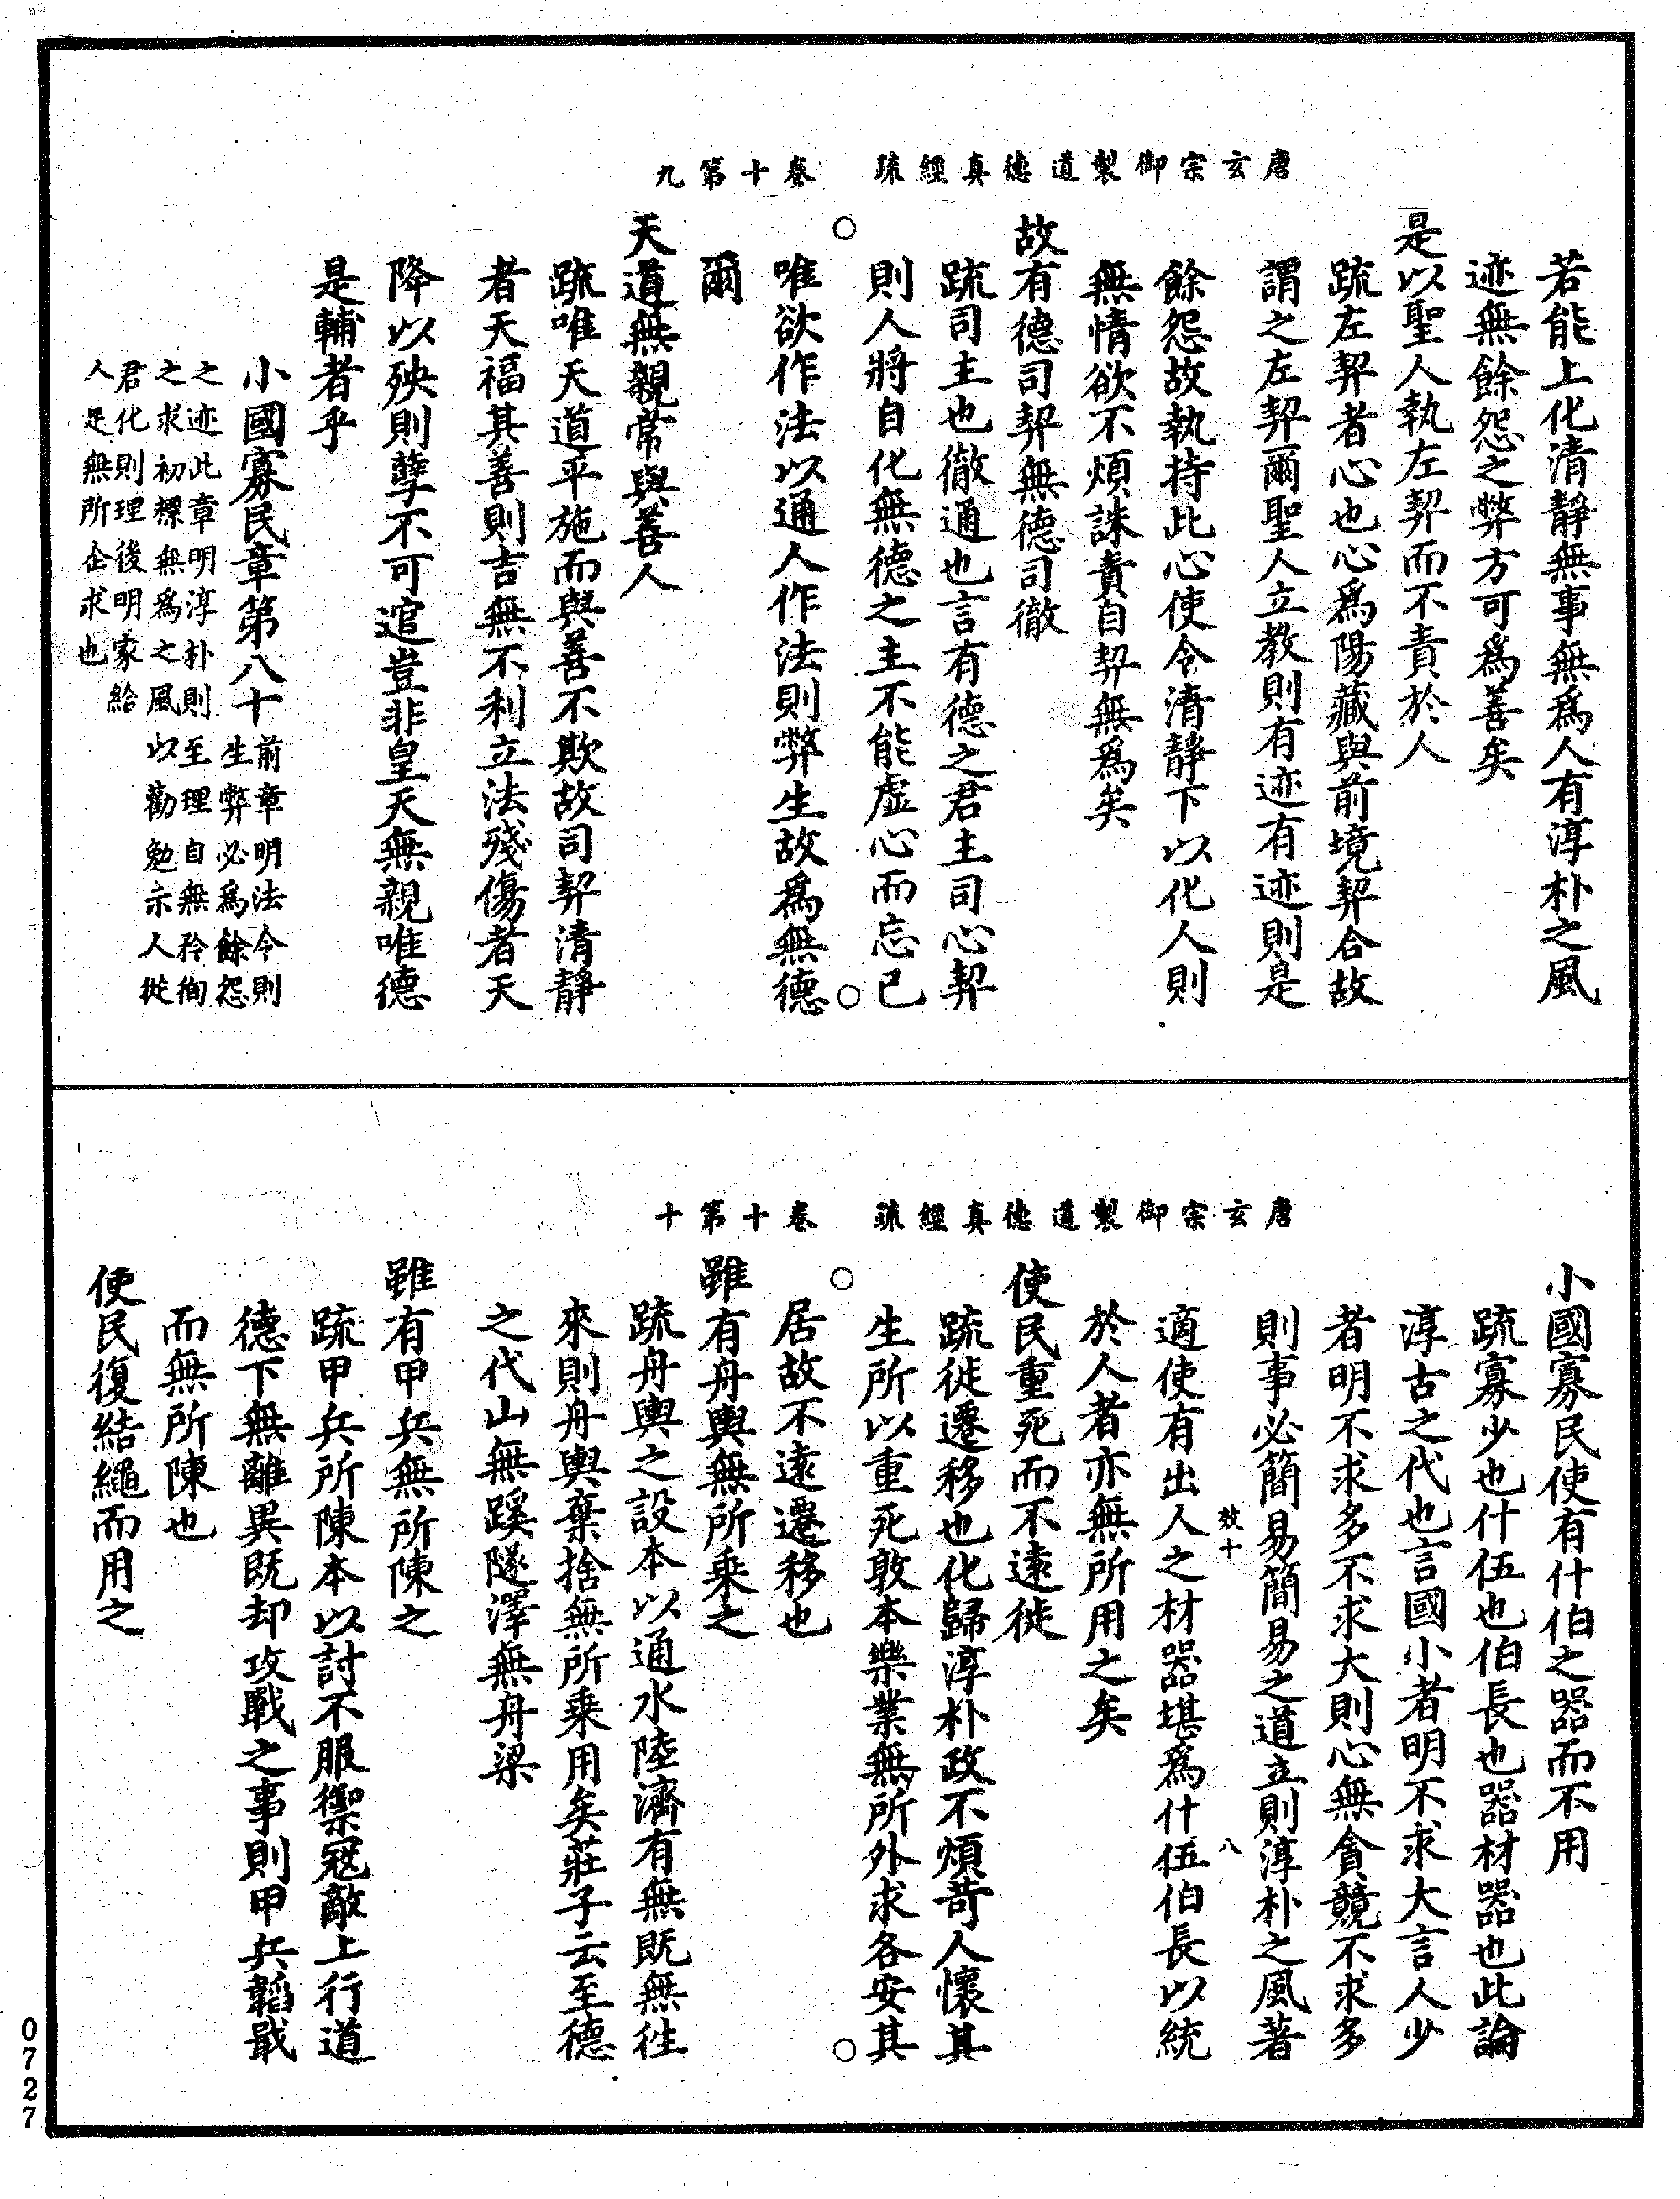 唐玄宗御製道德真經疏 卷十第九
若能上化清靜無事無爲人有淳朴之風
迹無餘怨之弊方可爲善矣
是以聖人執左契而不責於人
疏左契者心也心爲陽藏與前境契合故
謂之左契爾聖人立教則有迹有迹則是
餘怨故執持此心使令清靜下以化人則
無情欲不煩誅責自契無爲矣
故有德司契無德司徹
疏司主也徹通也言有德之君主司心契
則人將自化無德之主不能虛心而忘己
唯欲作法以通人作法則弊生故爲無德
爾
天道無親常與善人
疏唯天道平施而與善不欺故司契清靜
者天福其善則吉無不利立法殘傷者天
降以殃則孽不可逭豈非皇天無親唯德
是輔者乎
小國寡民章第八十
前章明法令則
生弊必爲餘怨
之迹此章明淳朴則至理自無矜徇
之求初標無爲之風以勸勉示人從
君化則理後明家給
人足無所企求也
唐玄宗御製道德真經疏 卷十第十
小國寡民使有什伯之器而不用
疏寡少也什伍也伯長也器材器也此論
淳古之代也言國小者明不求大言人少
者明不求多不求大則心無貪競不求多
則事必簡易簡易之道立則淳朴之風著
效十 八
適使有出人之材器堪爲什伍伯長以統
於人者亦無所用之矣
使民重死而不遠徙
疏徙遷移也化歸淳朴政不煩苛人懷其
生所以重死敦本樂業無所外求各安其
居故不遠遷移也
雖有舟輿無所乘之
疏舟輿之設本以通水陸濟有無既無往
來則舟輿棄捨無所乘用矣莊子云至德
之代山無蹊隧澤無舟梁
雖有甲兵無所陳之
疏甲兵所陳本以討不服禦寇敵上行道
德下無離異既却攻戰之事則甲兵韜戢
而無所陳也
使民復結繩而用之
0727